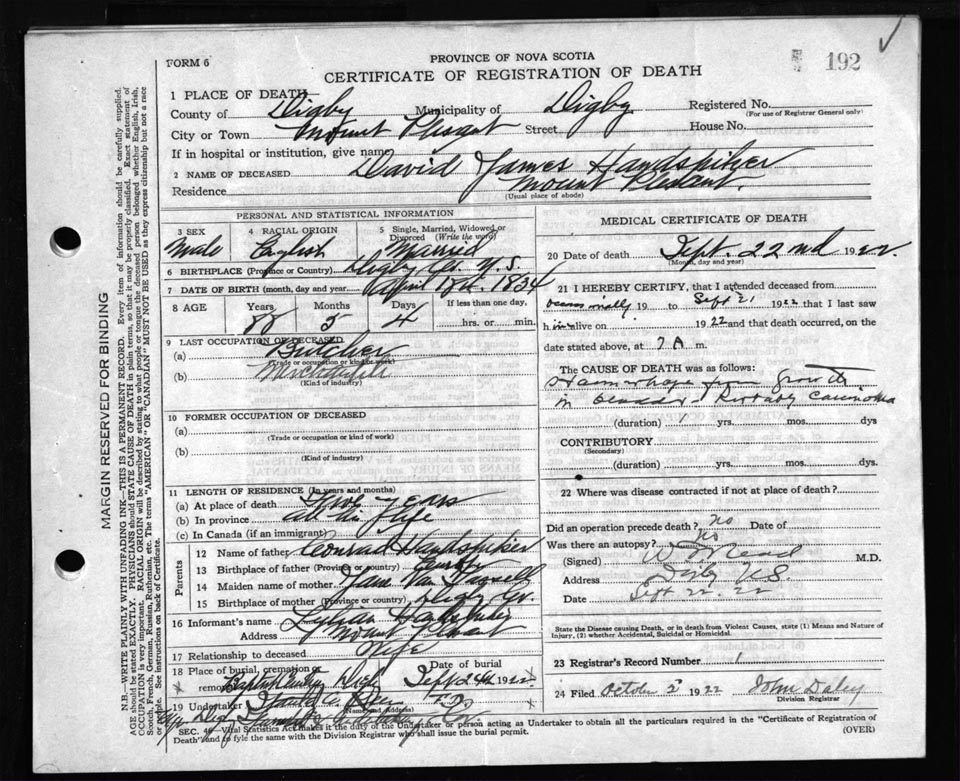 FORM 6
PROVINCE OF NOVA SCOTIA
192
CERTIFICATE OF REGISTRATION OF DEATH
1 PLACE OF DEATH
County of Digby Municipality of Digby Registered No.
(For use of Registrar General only)
City or Town Mount Plesant Street House No.
If in hospital or institution, give name
2 NAME OF DECEASED David James Handspiker
Residence Mount Plesant.
(Usual place of abode)
PERSONAL AND STATISTICAL INFORMATION
3 SEX 4 RACIAL ORIGIN 5 Single, Married, Widowed or Divorced (Write the word)
Male English Married
6 BIRTHPLACE (Province or Country) Digby Co. N.S.
7 DATE OF BIRTH (month, day and year) April 1834
8 AGE Years Months Days If less than one day,
88 5 4 hrs. or min.
9 LAST OCCUPATION OF DECEASED
(a) Butcher
(Trade or occupation or kind of work)
(b)
(Kind of industry)
10 FORMER OCCUPATION OF DECEASED
(a)
(Trade or occupation or kind of work)
(b)
(Kind of industry)
11 LENGTH OF RESIDENCE (In years and months)
(a) At place of death years
(b) In province all his life
(c) In Canada (if an immigrant)
Parents
12 Name of father Conrad Handspiker
13 Birthplace of father (Province or country)
14 Maiden name of mother Jane Van
15 Birthplace of mother (Province or country) Digby Co.
16 Informant's name
Address Mount Plesant
17 Relationship to deceased Wife
18 Place of burial, cremation or removal Baptist Digby Date of burial Sept 24th 1922
19 Undertaker
(Name and address)
MEDICAL CERTIFICATE OF DEATH
20 Date of death Sept. 22nd 1922
(Month, day and year)
21 I HEREBY CERTIFY, that I attended deceased from
occasionally 19 to Sept 21 1922 that I last saw
him alive on 1922 and that death occurred, on
date stated above, at 7 A m.
The CAUSE OF DEATH was as follows:
Haemorrhage from growth
in bladder - Probably carcinoma
(duration) 1 yrs. mos. dys
CONTRIBUTORY
(Secondary)
(duration) yrs. mos. dys.
22 Where was disease contracted if not at place of death?
Did an operation precede death? no Date of
Was there an autopsy? no
(Signed) Read M.D.
Address Digby N.S.
Date Sept 22. 22
State the Disease causing Death, or in death from Violent Causes, state (1) Means and Nature of
Injury, (2) whether Accidental, Suicidal or Homicidal.
23 Registrar's Record Number 1
24 Filed October 2 1922 John Daley
Division Registrar
SEC. 46—Vital Statistics Act makes it the duty of the Undertaker or person acting as Undertaker to obtain all the particulars required in the "Certificate of Registration of
Death" and to fyle the same with the Division Registrar who shall issue the burial permit. (OVER)
MARGIN RESERVED FOR BINDING
N.B.—WRITE PLAINLY WITH UNFADING INK—THIS IS A PERMANENT RECORD. Every item of information should be carefully supplied.
AGE should be stated EXACTLY. PHYSICIANS should STATE CAUSE OF DEATH in plain terms, so that it may be properly classified. Exact statement of
OCCUPATION is very important. RACIAL ORIGIN will be described by stating to what people or tongue the deceased person belonged whether English, Irish,
Scotch, French, German, Russian, Ruthenian, etc. The terms "AMERICAN" or "CANADIAN" MUST NOT BE USED as they express citizenship but not a race
or people. See instructions on back of Certificate.